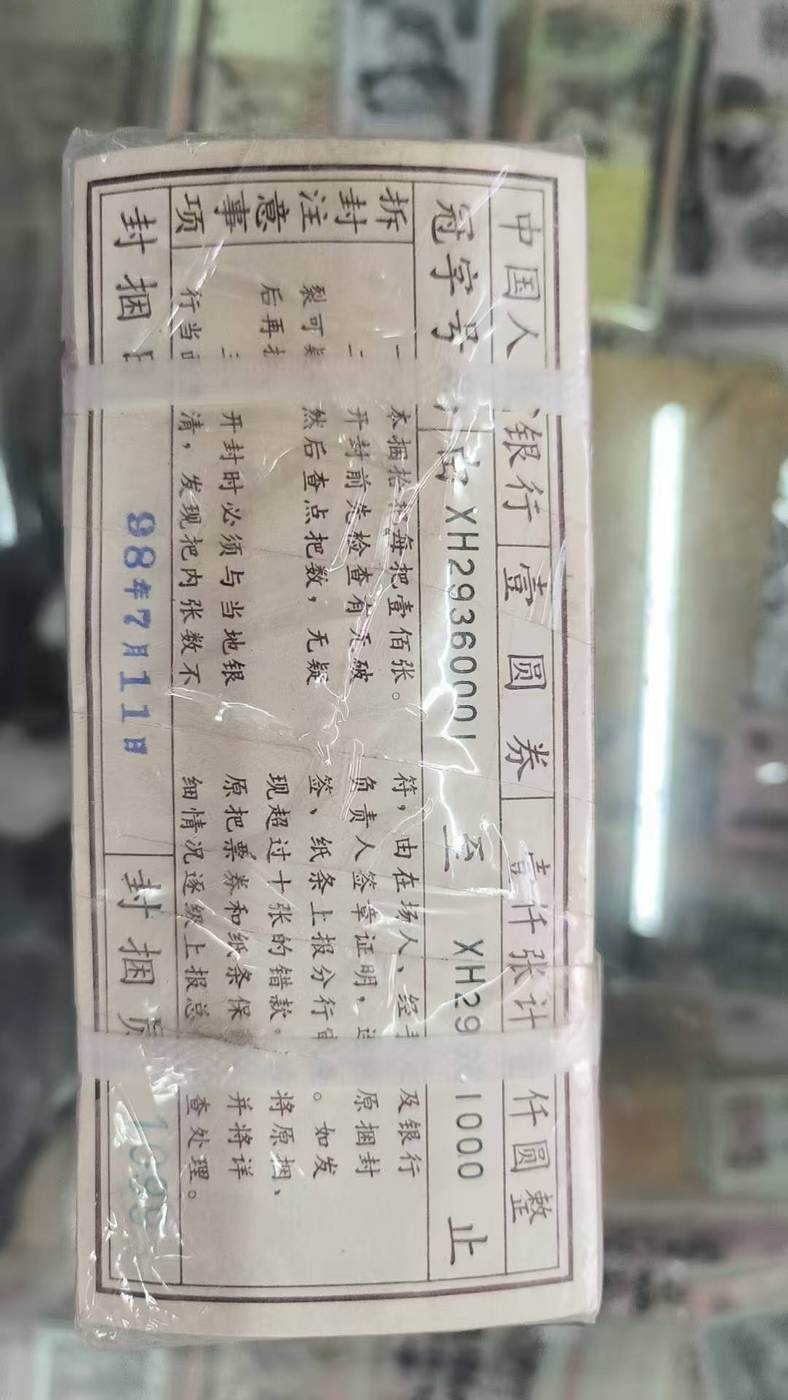 中国人 银行 壹圆券 壹仟张计 仟圆整
冠字号 由 XH29360001 至 XH29 1000 止
拆封注意事项
一 本捆拾把每把壹佰张。
二 开封前先检查有无破
裂可疑 然后查点把数，无疑
后再
三 开封时必须与当地银
行当 清，发现把内张数不
符，由在场人、经 及银行
负责人签章证明， 原捆封
签、纸条上报分行 。如发
现超过十张的错款 将原捆、
原把票券和纸条保 并将详
细情况逐级上报总 查处理。
封捆 98年7月11日 封捆员